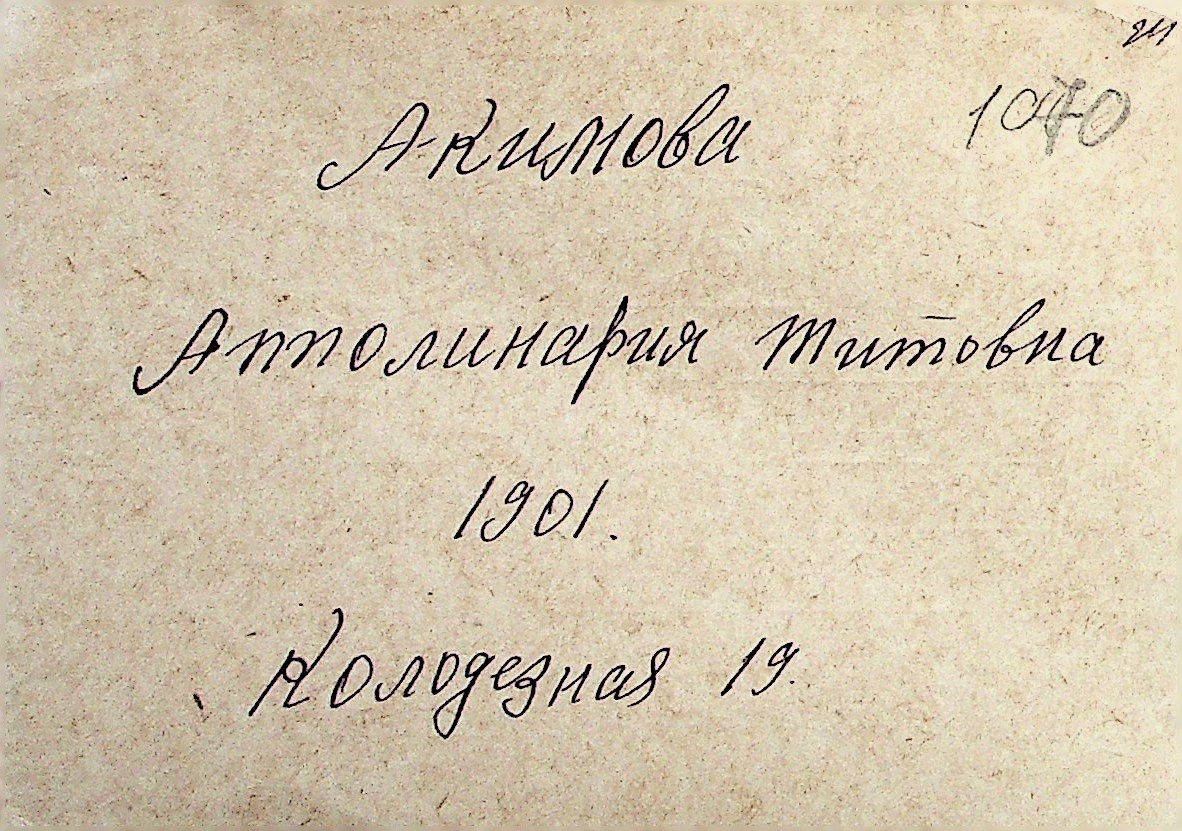 Акимова
Апполинария Титовна
1901.
Колодезная 19.